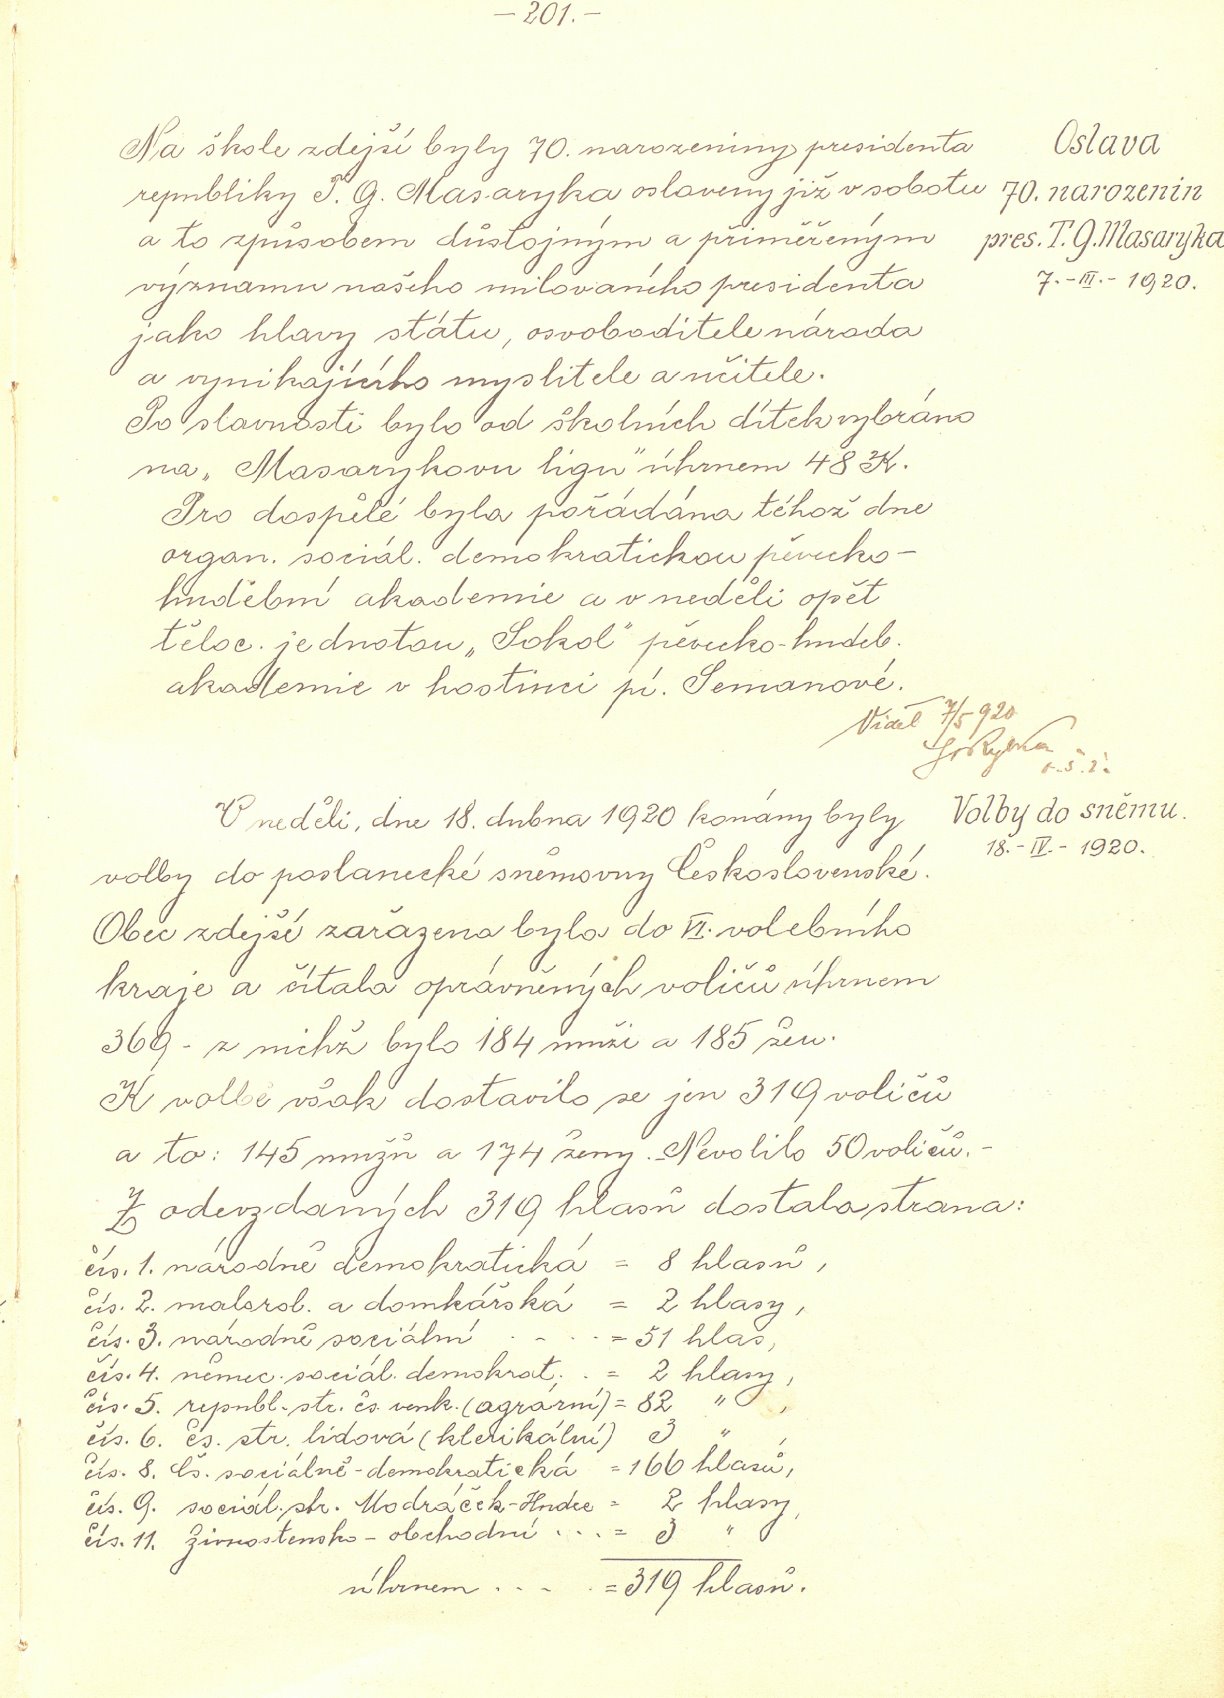 — 201. —
Na škole zdejší byly 70. narozeniny presidenta
republiky T. G. Masaryka oslaveny již v sobotu
a to způsobem důstojným a přiměřeným
významu našeho milovaného presidenta
jako hlavy státu, osvoboditele národa
a vynikajícího myslitele a učitele.
Po slavnosti bylo od školních dítek vybráno
na „Masarykovu ligu" úhrnem 48 K.
Pro dospělé byla pořádána téhož dne
organ. sociál. demokratickou pěvecko-
hudební akademie a v neděli opět
těloc. jednotou „Sokol" pěvecko-hudeb.
akademie v hostinci pí. Semanové.
Oslava
70. narozenin
pres. T. G. Masaryka
7.-III.- 1920.
Viděl 7/5 920
o. š. i.
V neděli, dne 18. dubna 1920 konány byly
volby do poslanecké sněmovny Československé.
Obec zdejší zařazena byla do VI. volebního
kraje a čítala oprávněných voličů úhrnem
369 - z nichž bylo 184 muži a 185 žen.
K volbě však dostavilo se jen 319 voličů
a to: 145 mužů a 174 ženy. Nevolilo 50 voličů. -
Z odevzdaných 319 hlasů dostala strana:
Volby do sněmu.
18.- IV.- 1920.
čís. 1. národně demokratická = 8 hlasů,
čís. 2. malorol. a domkářská = 2 hlasy,
čís. 3. národně sociální . . . . = 51 hlas,
čís. 4. němec. sociál. demokrat. . = 2 hlasy,
čís. 5. republ. str. čs. venk. (agrární) = 82 " ,
čís. 6. čs. str. lidová (klerikální) 3 " ,
čís. 8. čs. sociálně-demokratická = 166 hlasů,
čís. 9. sociál. str. Modráček-Hudec = 2 hlasy,
čís. 11. živnostensko-obchodní . . . = 3 "
úhrnem . . . . = 319 hlasů.